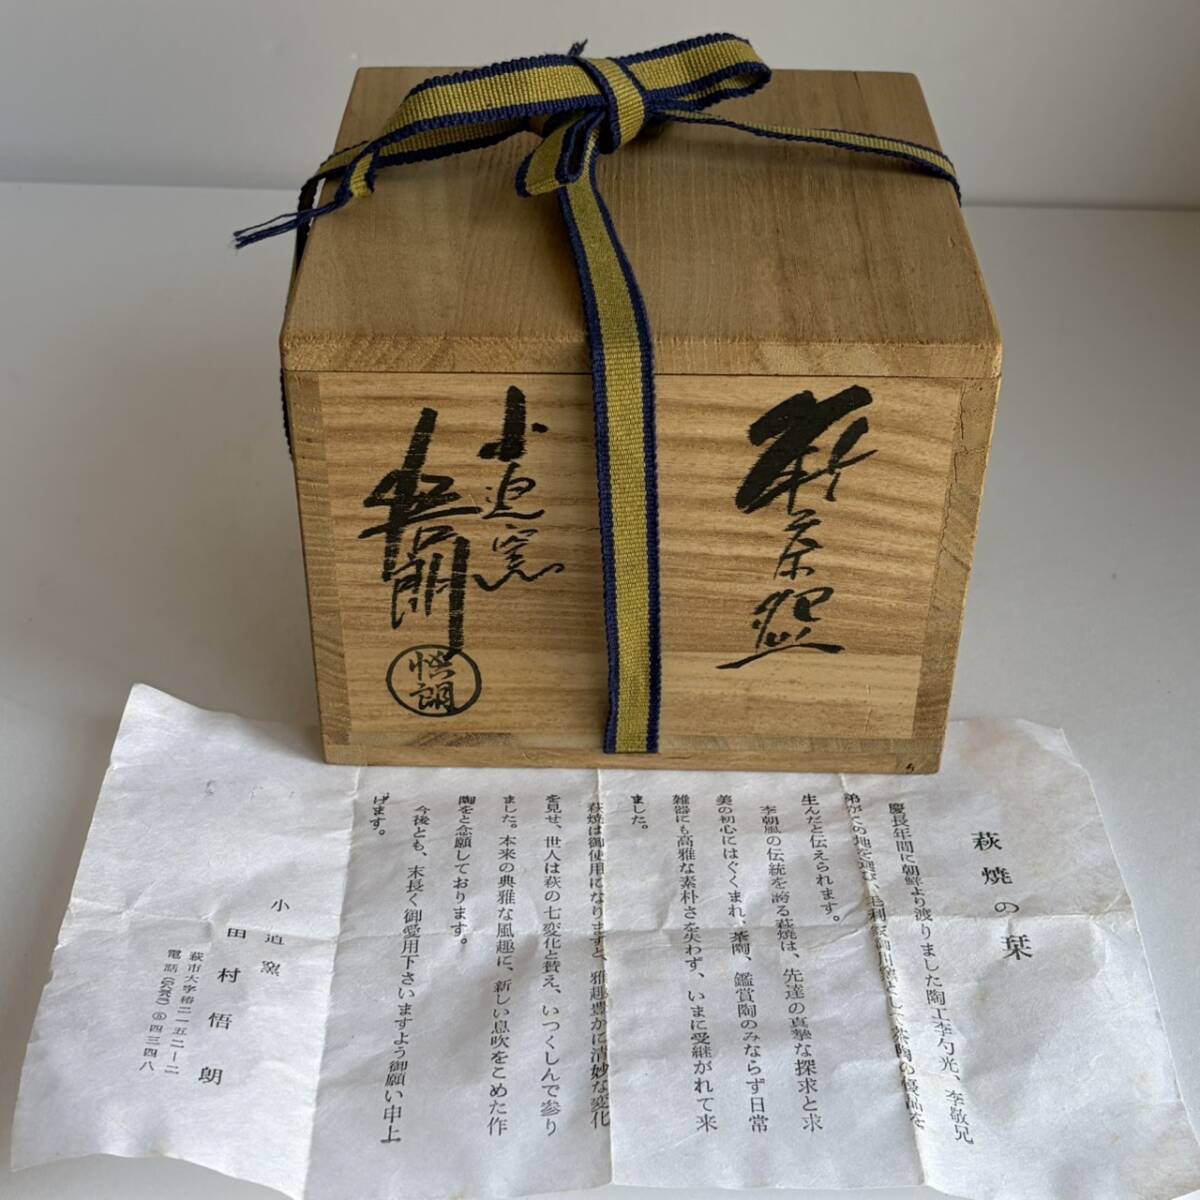 萩茶盌
小迫窯
悟朗
悟朗
萩焼の栞
慶長年間に朝鮮より渡りました陶工李勺光、李敬兄
弟がこの地を選び、毛利家御用窯として茶陶の優品を
生んだと伝えられます。
李朝風の伝統を誇る萩焼は、先達の真摯な探求と求
美の初心にはぐくまれ、茶陶、鑑賞陶のみならず日常
雑器にも高雅な素朴さを失わず、いまに受継がれて来
ました。
萩焼は御使用になりますと、雅趣豊かに清妙な変化
を見せ、世人は萩の七変化と賛え、いつくしんで参り
ました。本来の典雅な風趣に、新しい息吹をこめた作
陶をと念願しております。
今後とも、末長く御愛用下さいますよう御願い申上
げます。
小迫窯
田村悟朗
萩市大字椿二一五二ー二